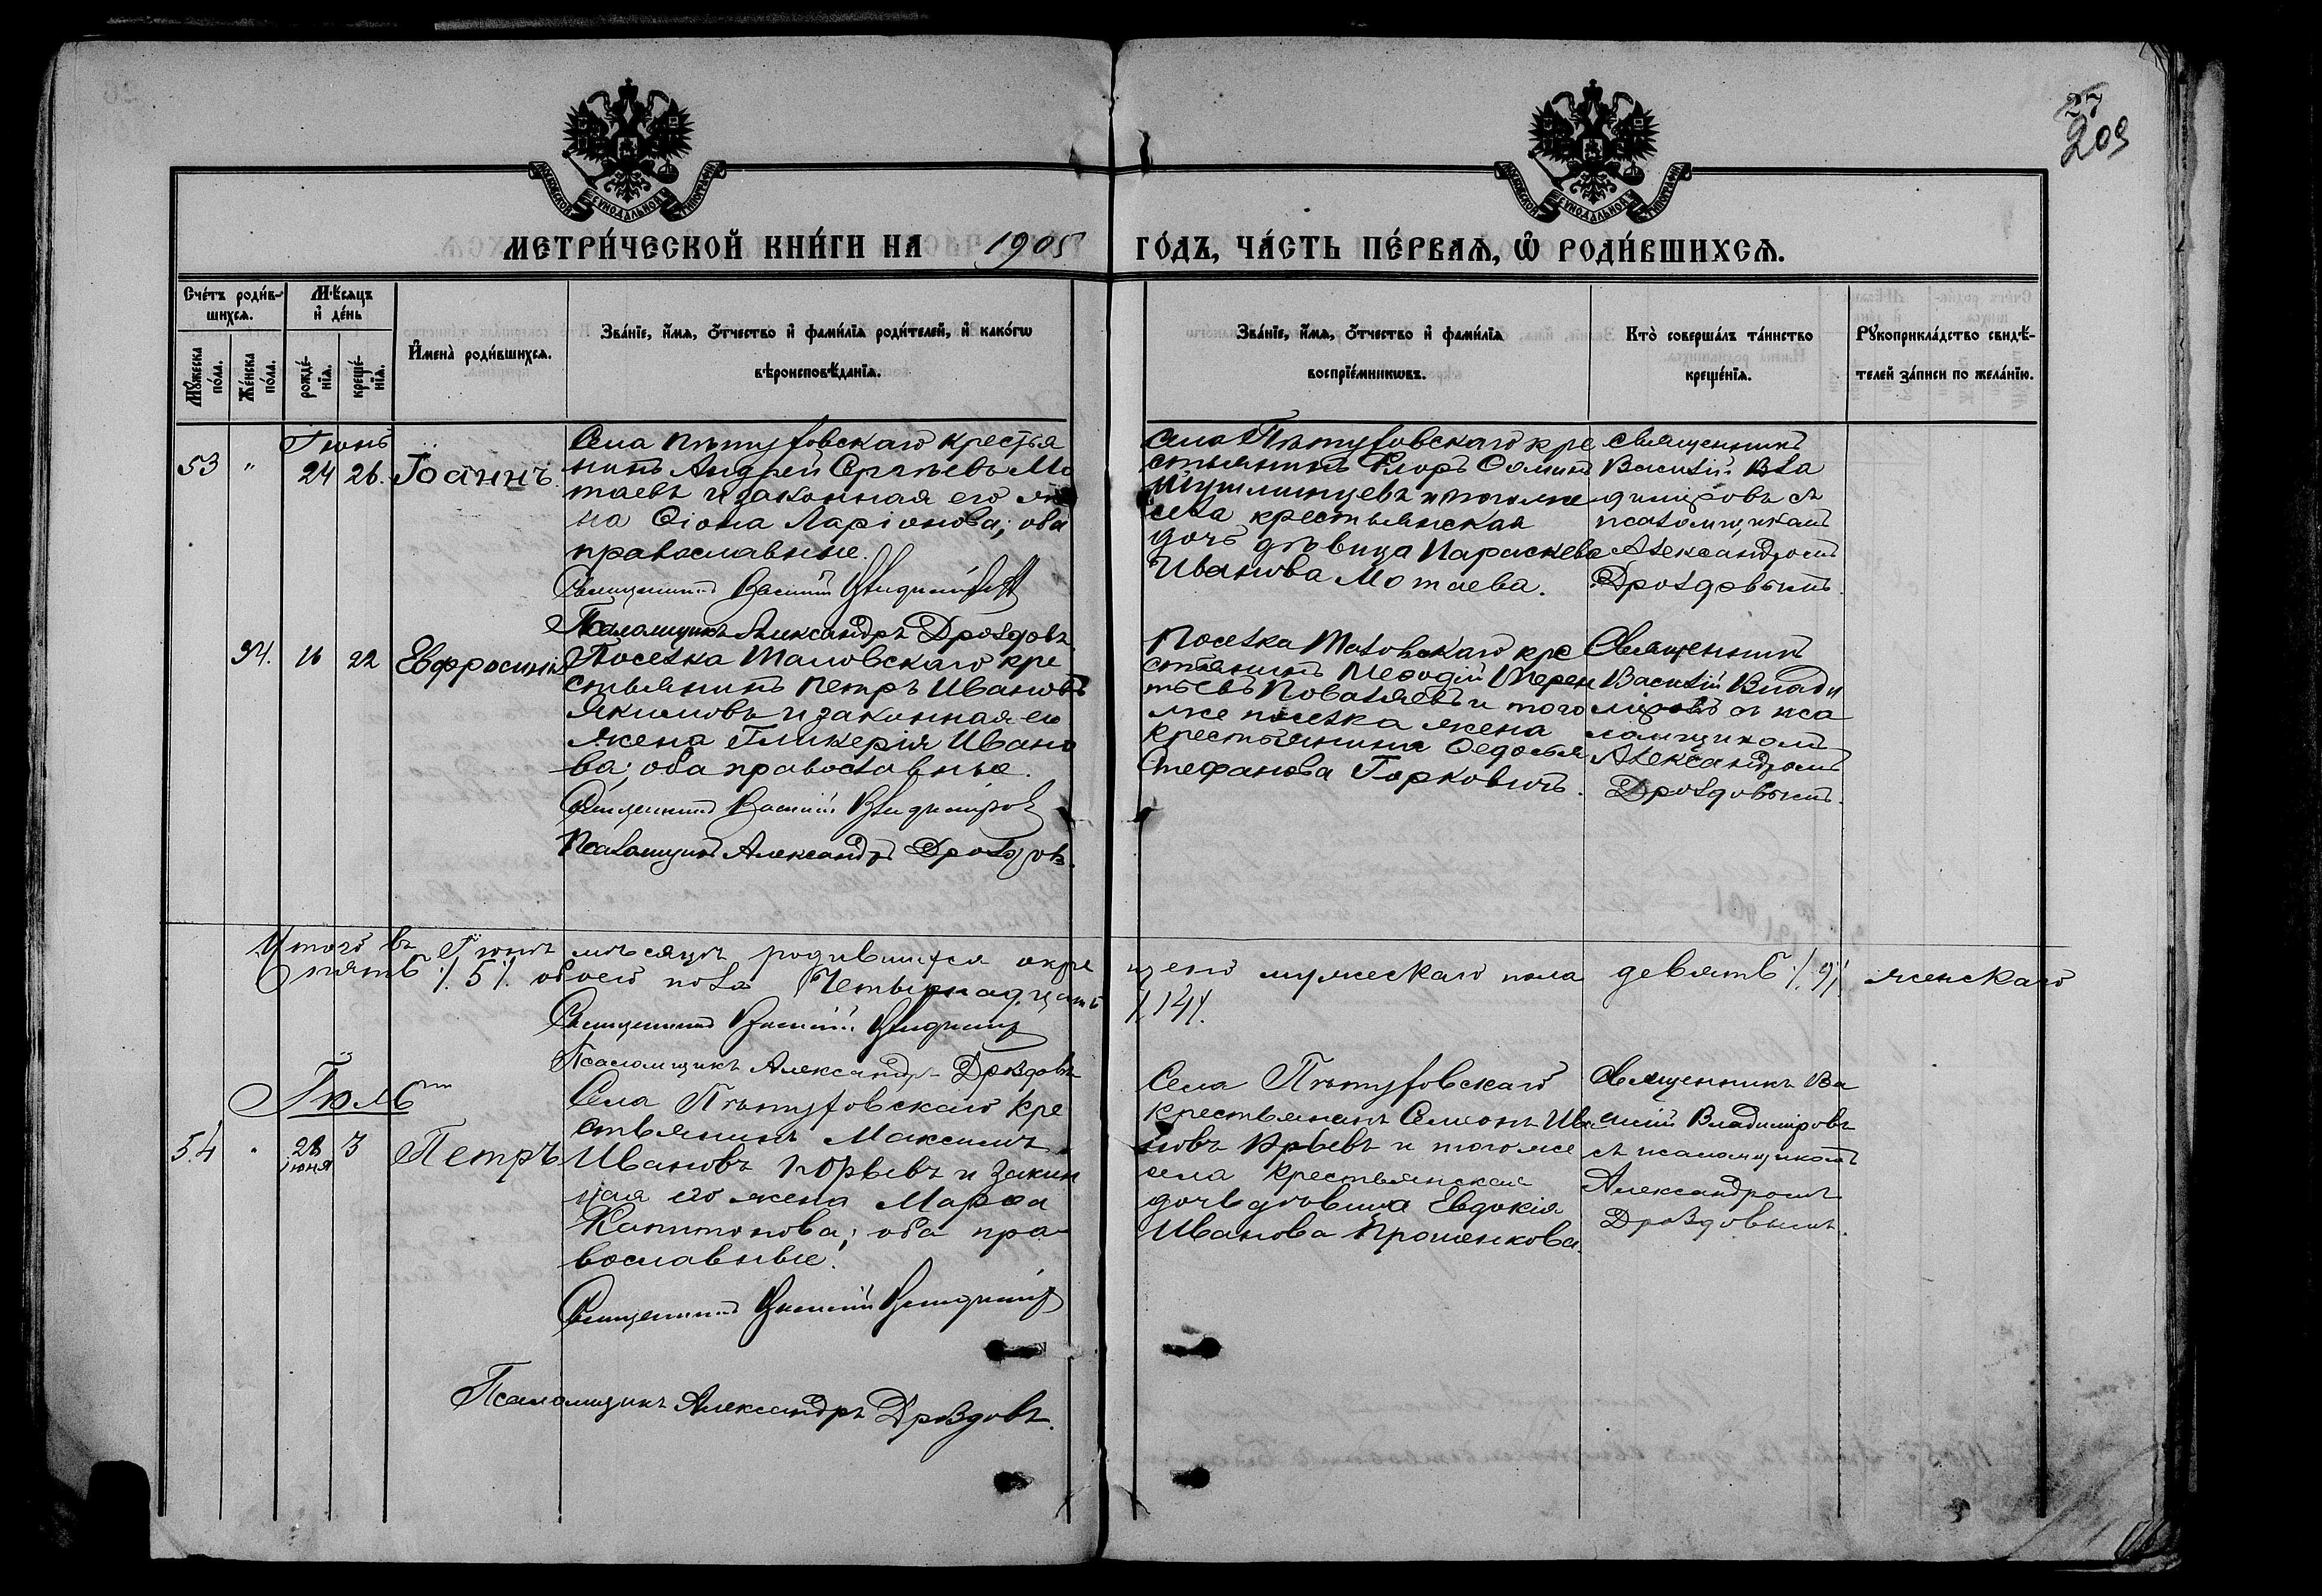 27
209
МОСКОВСКОЙ СѴНОДАЛЬНОЙ ТИПОГРАФІИ
МОСКОВСКОЙ СѴНОДАЛЬНОЙ ТИПОГРАФІИ
МЕТРИ́ЧЕСКОЙ КНИ́ГИ НА 1905 ГО́ДЪ, ЧА́СТЬ ПЕ́РВАѦ, Ѡ҆ РОДИ́ВШИХСѦ.
Сче́тъ роди́в-
шихсѧ.
Мꙋ́жеска по́ла.
Же́нска по́ла.
Мѣ́сѧцъ
и҆ де́нь
рожде́-
нїѧ.
креще́-
нїѧ.
И҆мена̀ роди́вшихсѧ.
Зва́нїе, и҆́мѧ, ѻ҆́тчество и҆ фамі́лїѧ роди́телей, и҆ како́гѡ
вѣроисповѣ́данїѧ.
Зва́нїе, и҆́мѧ, ѻ҆́тчество и҆ фамі́лїѧ
воспрїе́мникѡвъ.
Кто̀ соверша́лъ та́инство
креще́нїѧ.
Рꙋкоприкла́дство свидѣ́-
телей за́писи по жела́нїю.
Іюнь
53 " 24 26. Іоаннъ.
Села Пѣтуховскаго крестья
нинъ Андрей Сергѣевъ Мо
таевъ и законная его же
на Ѳіона Ларіонова; оба
православные.
Священникъ Василій Владиміровъ
Псаломщикъ Александръ Дроздовъ
села Пѣтуховскаго кре
стьянинъ Флоръ Ѳоминъ
и того же
села крестьянская
дочь дѣвица Параскева
Иванова Мотаева.
Священникъ
Василій Вла
диміровъ съ
псаломщикомъ
Александромъ
Дроздовымъ.
34. 16 22 Евфросинія
Поселка Таловскаго кре
стьянинъ Петръ Ивановъ
Якимовъ и законная его
жена Гликерія Ивано
ва; оба православные.
Священникъ Василій Владиміровъ
Псаломщикъ Александръ Дроздовъ.
Поселка Таловскаго кре
стьянинъ Меѳодій Терен
тьевъ Поваляевъ и того
же поселка жена
крестьянина Ѳедосья
Стефанова Горковичъ.
Священникъ
Василій Влади
міровъ съ пса
ломщикомъ
Александромъ
Дроздовымъ.
Итого въ Іюнѣ мѣсяцѣ родившихся окре
щено мужескаго пола девять /.9/. женскаго
пять /.5/. обоего пола Четырнадцать
/.14/.
Священникъ Василій Владиміровъ
Псаломщикъ Александръ Дроздовъ
Іюль
54 " 28 3 Петръ
іюня
Села Пѣтуховскаго кре
стьянинъ Максимъ
Ивановъ Юрьевъ и закон
ная его жена Марѳа
Капитонова; оба пра-
вославные.
Священникъ Василій Владиміровъ
Псаломщикъ Александръ Дроздовъ.
Села Пѣтуховскаго
крестьянинъ Семіонъ Ива
новъ Юрьевъ и того же
села крестьянская
дочь дѣвица Евдокія
Иванова Прошенкова.
Священникъ Ва
силій Владиміровъ
съ псаломщикомъ
Александромъ
Дроздовымъ.